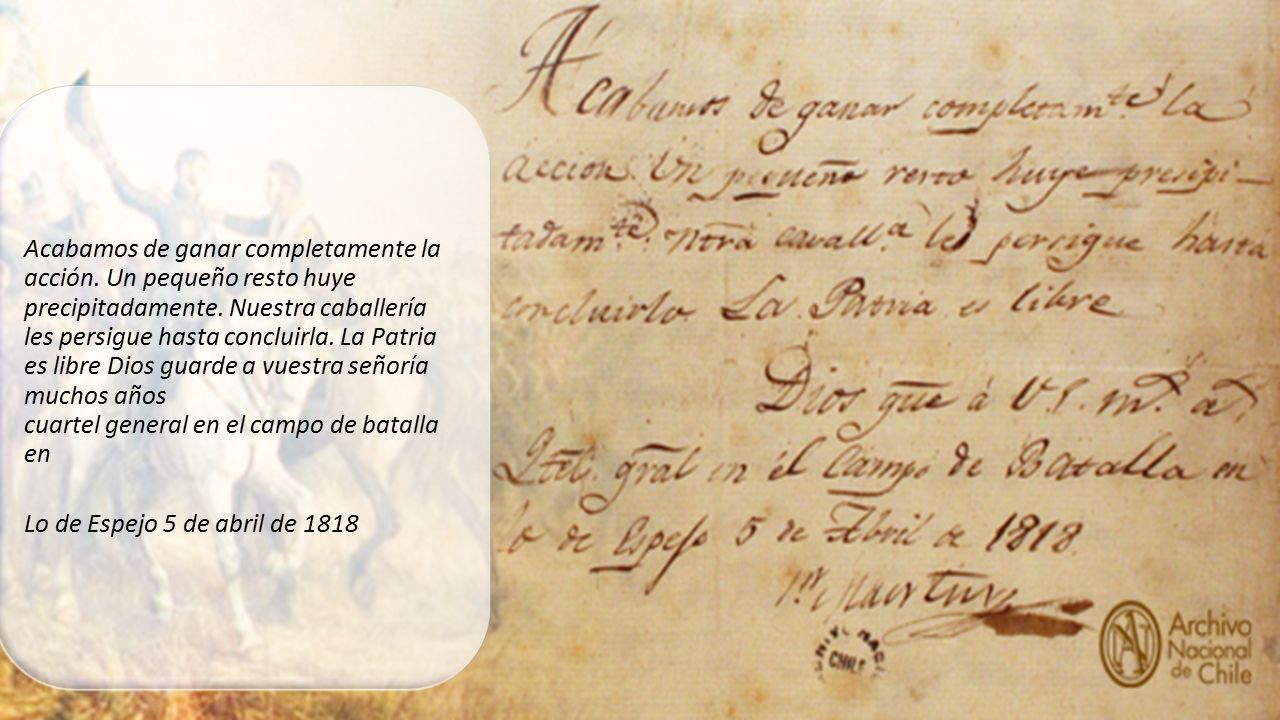 Acabamos de ganar completamente la
acción. Un pequeño resto huye
precipitadamente. Nuestra caballería
les persigue hasta concluirla. La Patria
es libre Dios guarde a vuestra señoría
muchos años
cuartel general en el campo de batalla
en
Lo de Espejo 5 de abril de 1818
Acabamos de ganar completamte. la
accion. Un pequeño resto huye presipi-
tadamte. Ntra cavalla. les persigue hasta
concluirlo. La Patria es libre
Dios gue á V.S. ms. as.
Qtel. gral en el Campo de Batalla en
lo de Espejo 5 de Abril de 1818.
CHILE
Archivo
Nacional
de Chile